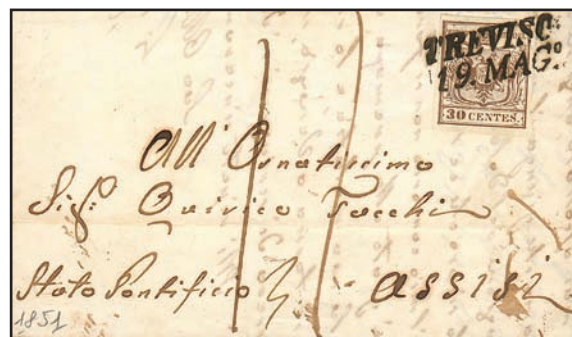 TREVISO
19. MAG.º
30 CENTES.
All' Ornatissimo
Sig.r Quirico Tocchi
Stato Pontificio Assisi
1851